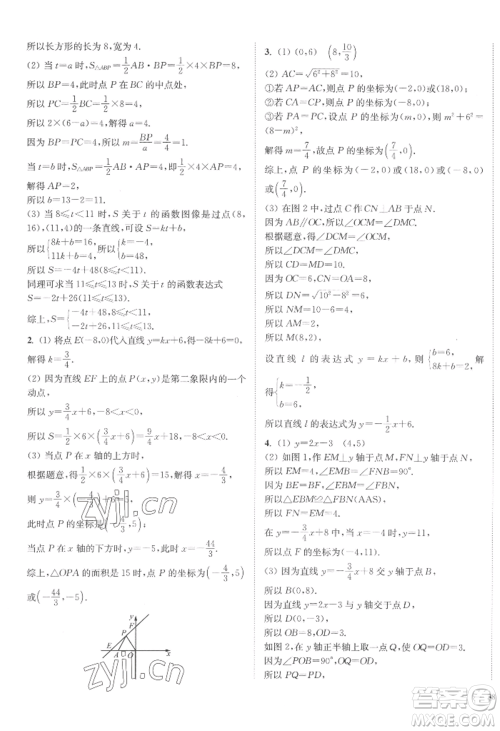 所以长方形的长为 8,宽为 4.
(2) 当 t=a 时,S△ABP=1/2 AB·BP=1/2×4×BP=8,
所以 BP=4,此时点 P 在 BC 的中点处,
所以 PC=4.
因为 1/2 AB·BC=1/2×4×8=16,
所以 BC=8.
因为 BP=PC=4,所以 m=BP/a=4/4=1.
当 t=b 时,S△ABP=1/2 AB·AP=1/2×4×AP=4,
解得 AP=2,
所以 b=13-2=11.
(3) 当 8≤t<11 时,S 关于 t 的函数图像过点(8,
16),
的一条直线,可设 S=kt+b,
所以{8k+b=16, 11k+b=4, 所以{k=-4, b=48,
所以 S=-4t+48(8≤t<11).
同理可求当 11≤t≤13 时 S 关于 t 的函数表达式
S=-2t+26(11≤t≤13).
综上,S={-4t+48, 8≤t<11, -2t+26, 11≤t≤13.
3. (1) 将点 E(-8,0)代入直线 y=kx+6,得 0=-8k+6,
解得 k=3/4.
(2) 因为直线 EF 上的点 P(x,y)是第二象限内的一个
动点,
所以 y=3/4x+6>0,-8<x<0.
所以 S=1/2×6×(3/4x+6)=9/4x+18(-8<x<0).
(3) 当点 P 在 x 轴的上方时,
根据题意,得 1/2×6×(3/4x+6)=15,解得 x=-4/3.
则 y=3/4×(-4/3)+6=5,
此时点 P 的坐标为(-4/3,5).
当点 P 在 x 轴的下方时,y=-5,则 x=-44/3.
综上,△OPA 的面积是 15 时,点 P 的坐标为(-4/3,5)
或(-44/3,-5).
y
F
P
E
A
O
x
3. (1) (0,6) (8,10/3)
(2) AC=√6²+8²=10.
①若 AP=AC,则点 P 的坐标为(-2,0)或(18,0);
②若 CA=CP,则点 P 的坐标为(-8,0);
③若 PA=PC,设点 P 的坐标为(m,0),则 m²+6²=
(8-m)²,
解得 m=7/4,故点 P 的坐标为(7/4,0).
综上,点 P 的坐标为(-2,0)或(18,0)或(-8,0)
或(7/4,0).
(3) 在图 2 中,过点 C 作 CN⊥AB 于点 N.
因为 AB∥OC,所以∠OCM=∠DMC.
根据题意,得∠DCM=∠OCM,
所以∠DCM=∠DMC.
所以 CD=MD=10.
因为∠CND=90°,CN=OA=8,
所以 DN=√10²-8²=6.
所以 NM=10-6=4,
所以 AM=2.
所以 M(8,2).
设直线 l 的表达式 y=kx+b,则{b=6, 8k+b=2, 解
得{k=-1/2, b=6.
所以直线 l 的表达式为 y=-1/2x+6.
4. (1) y=2x-3 (4,5)
(2) 如图 1,作 EM⊥y 轴于点 M,FN⊥y 轴于点 N,
所以 EM=4,∠EMB=∠FNB=90°.
因为 BE=BF,∠EBM=∠FBN,
所以△EBM≌△FBN(AAS),
所以 FN=EM=4.
在 y=2x-3 中,当 x=-4 时,y=-11,
所以点 F 的坐标为(-4,-11).
(3) 因为直线 y=-4/3x+8 交 y 轴于点 B,
所以 B(0,8).
因为直线 y=-4/3x+8 交 x 轴于点 D,
所以 D(6,0),
所以 OB=8,OD=6.
如图 2,在 y 轴正半轴上取一点 Q,使 OQ=OD=6.
因为 OB⊥OD,OQ=OD,
所以 PQ=PD.
zyjl.cn
zyjl.cn
答案圈